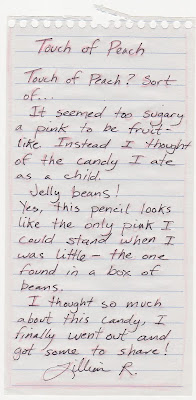 Touch of Peach
Touch of Peach? Sort
of...
It seemed too sugary
a pink to be fruit-
like. Instead I thought
of the candy I ate
as a child.
Jelly beans!
Yes, this pencil looks
like the only pink I
could stand when I
was little - the one
found in a box of
beans.
I thought so much
about this candy, I
finally went out and
got some to share!
Jillian R.